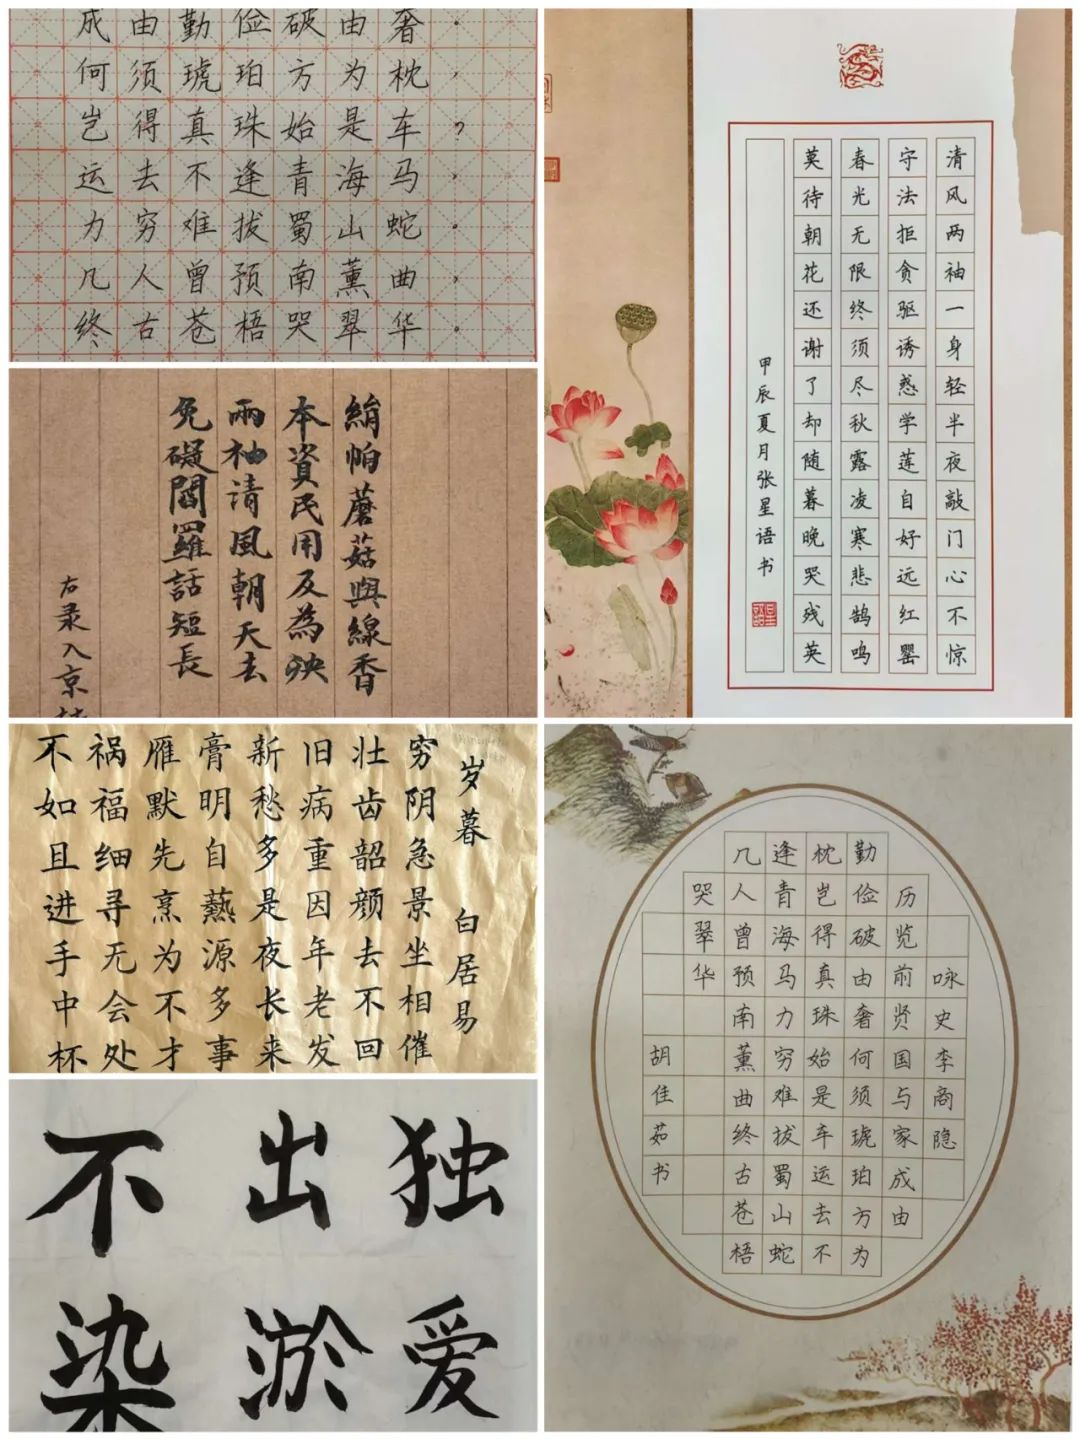 成由勤俭破由奢。
何须琥珀方为枕,
岂得真珠始是车?
运去不逢青海马,
力穷难拔蜀山蛇。
几人曾预南薰曲,
终古苍梧哭翠华。
清风两袖一身轻半夜敲门心不惊
守法拒贪驱诱惑学莲自好远红罂
春光无限终须尽秋露凌寒悲鹄鸣
莫待朝花还谢了却随暮晚哭残英
甲辰夏月张星语书
絹帕蘑菇與線香
本資民用反為殃
兩袖清風朝天去
免礙閻羅話短長
右录入京
岁暮 白居易
穷阴急景坐相催
壮齿韶颜去不回
旧病重因年老发
新愁多是夜长来
膏明自爇源多事
雁默先烹为不才
祸福细寻无会处
不如且进手中杯
独爱
出淤
不染
咏史李商隐
历览前贤国与家成由
勤俭破由奢何须琥珀方为
枕岂得真珠始是车运去不
逢青海马力穷难拔蜀山蛇
几人曾预南薰曲终古苍梧
哭翠华
胡佳茹书